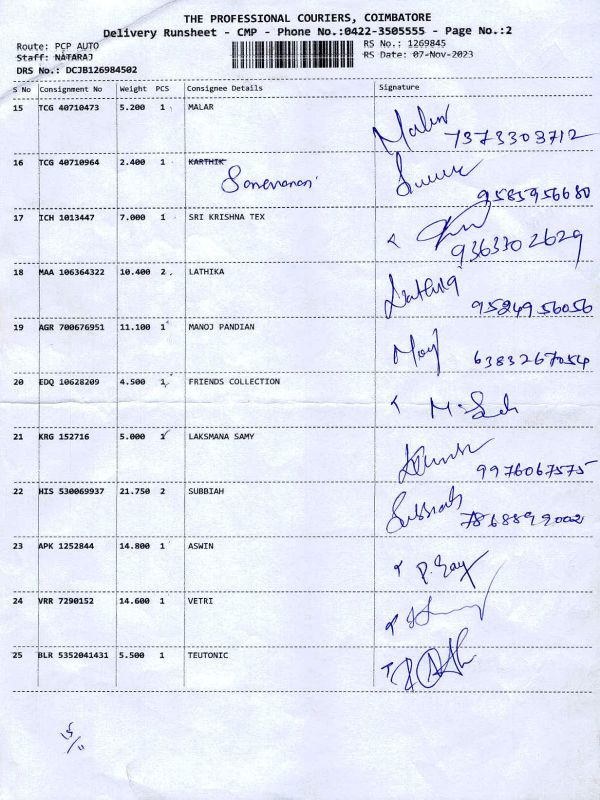 THE PROFESSIONAL COURIERS, COIMBATORE
Delivery Runsheet - CMP - Phone No.:0422-3505555 - Page No.:2
Route: PCP AUTO RS No.: 1269845
Staff: NATARAJ RS Date: 07-Nov-2023
DRS No.: DCJB126984502
S No Consignment No Weight PCS Consignee Details Signature
15 TCG 40710473 5.200 1 MALAR Malar
7373303712
16 TCG 40710964 2.400 1 KARTHIK
9585956680
17 ICH 1013447 7.000 1 SRI KRISHNA TEX
9363302629
18 MAA 106364322 10.400 2 LATHIKA Lathika
9524956056
19 AGR 700676951 11.100 1 MANOJ PANDIAN Manoj
6383267054
20 EDQ 10628209 4.500 1 FRIENDS COLLECTION
21 KRG 152716 5.000 1 LAKSMANA SAMY
9976067575
22 HIS 530069937 21.750 2 SUBBIAH Subbiah
7868899002
23 APK 1252844 14.800 1 ASWIN
24 VRR 7290152 14.600 1 VETRI
25 BLR 5352041431 5.500 1 TEUTONIC